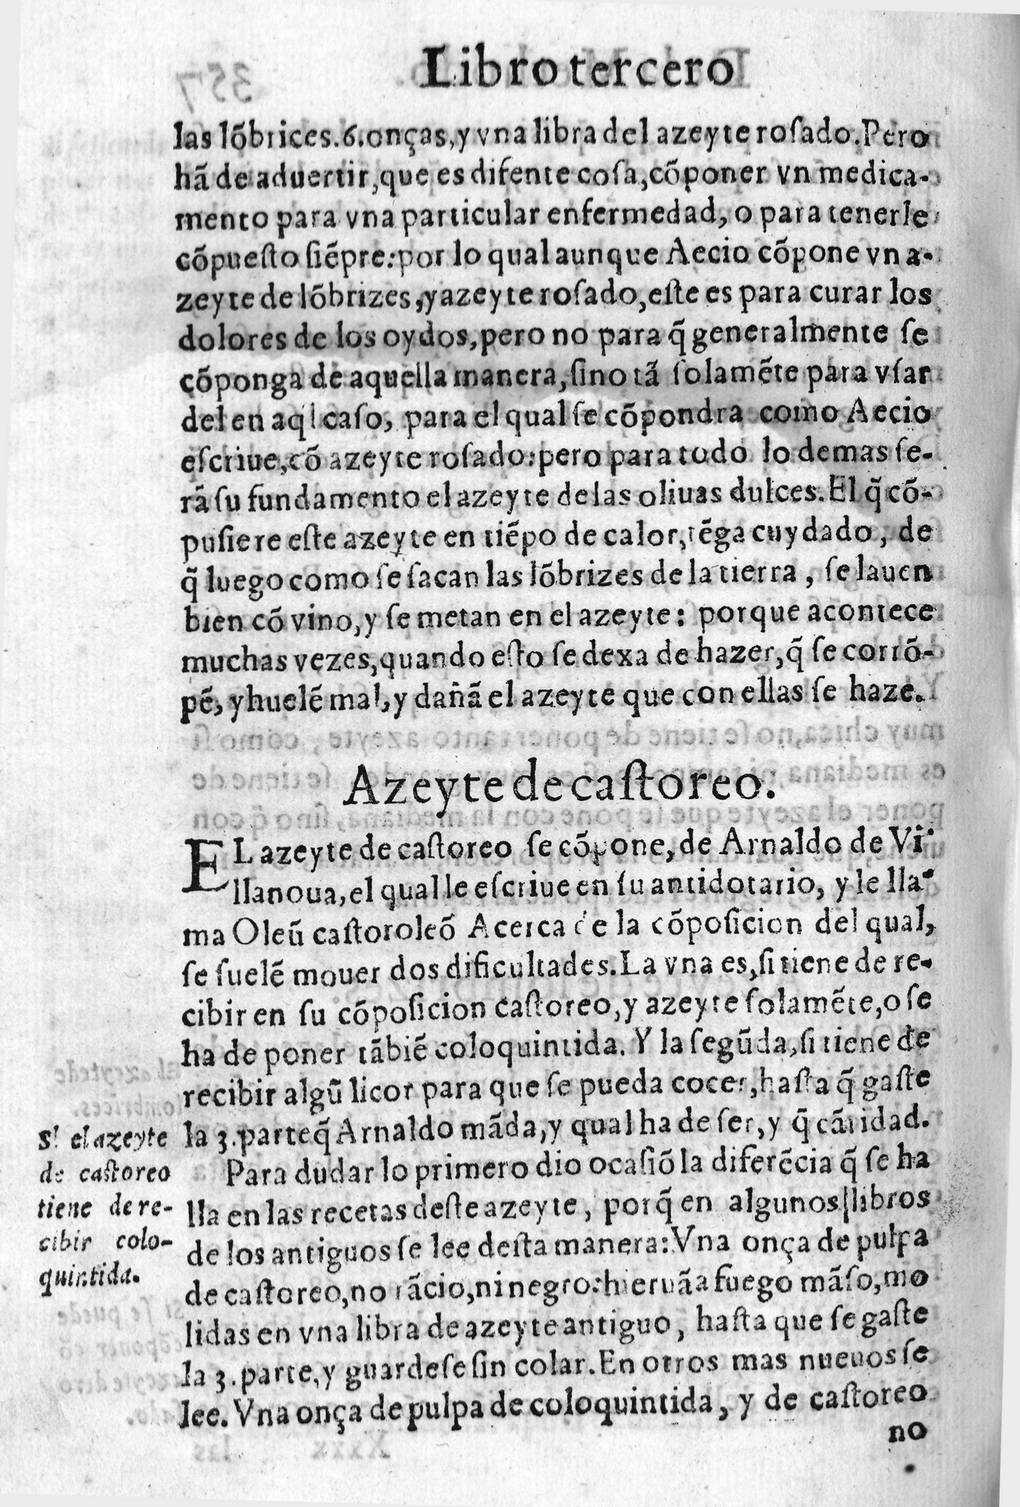 Libro tercero
las lõbrices.6.onças,y vna libra del azeyte rosado.Pero
hã de aduertir,que es difente cosa,cõponer vn medica-
mento para vna particular enfermedad, o para tenerle
cõpuesto siẽpre:por lo qual aunque Aecio cõpone vn a-
zeyte de lõbrizes,y azeyte rosado,este es para curar los
dolores de los oydos,pero no para q̃ generalmente se
cõponga de aquella manera,sino tã solamẽte para vsar
del en aq̃l caso, para el qual se cõpondra como Aecio
escriue,cõ azeyte rosado:pero para todo lo demas se-
rã su fundamento el azeyte de las oliuas dulces.El q̃ cõ-
pusiere este azeyte en tiẽpo de calor,tẽga cuydado, de
q̃ luego como se sacan las lõbrizes de la tierra, se lauen
bien cõ vino,y se metan en el azeyte: porque acontece
muchas vezes,quando esto se dexa de hazer,q̃ se corrõ-
pẽ, y huelẽ mal,y dañã el azeyte que con ellas se haze.
Azeyte de castoreo.
EL azeyte de castoreo se cõpone,de Arnaldo de Vi-
llanoua,el qual le escriue en su antidotario, y le lla-
ma Oleũ castoroleõ Acerca de la cõposicion del qual,
se suelẽ mouer dos dificultades.La vna es,si tiene de re-
cibir en su cõposicion castoreo,y azeyte solamẽte,o se
ha de poner tãbiẽ coloquintida. Y la segũda,si tiene de
recibir algũ licor para que se pueda cocer,hasta q̃ gaste
la 3.parte q̃ Arnaldo mãda,y qual ha de ser,y q̃ cãtidad.
Para dudar lo primero dio ocasiõ la diferẽcia q̃ se ha
lla en las recetas deste azeyte, porq̃ en algunos libros
de los antiguos se lee desta manera:Vna onça de pulpa
de castoreo,no rãcio,ni negro:hieruã a fuego mãso,mo
lidas en vna libra de azeyte antiguo, hasta que se gaste
la 3.parte,y guardese sin colar.En otros mas nueuos se
lee. Vna onça de pulpa de coloquintida, y de castoreo
no
Si el azeyte
de castoreo
tiene de re-
cibir colo-
quintida.